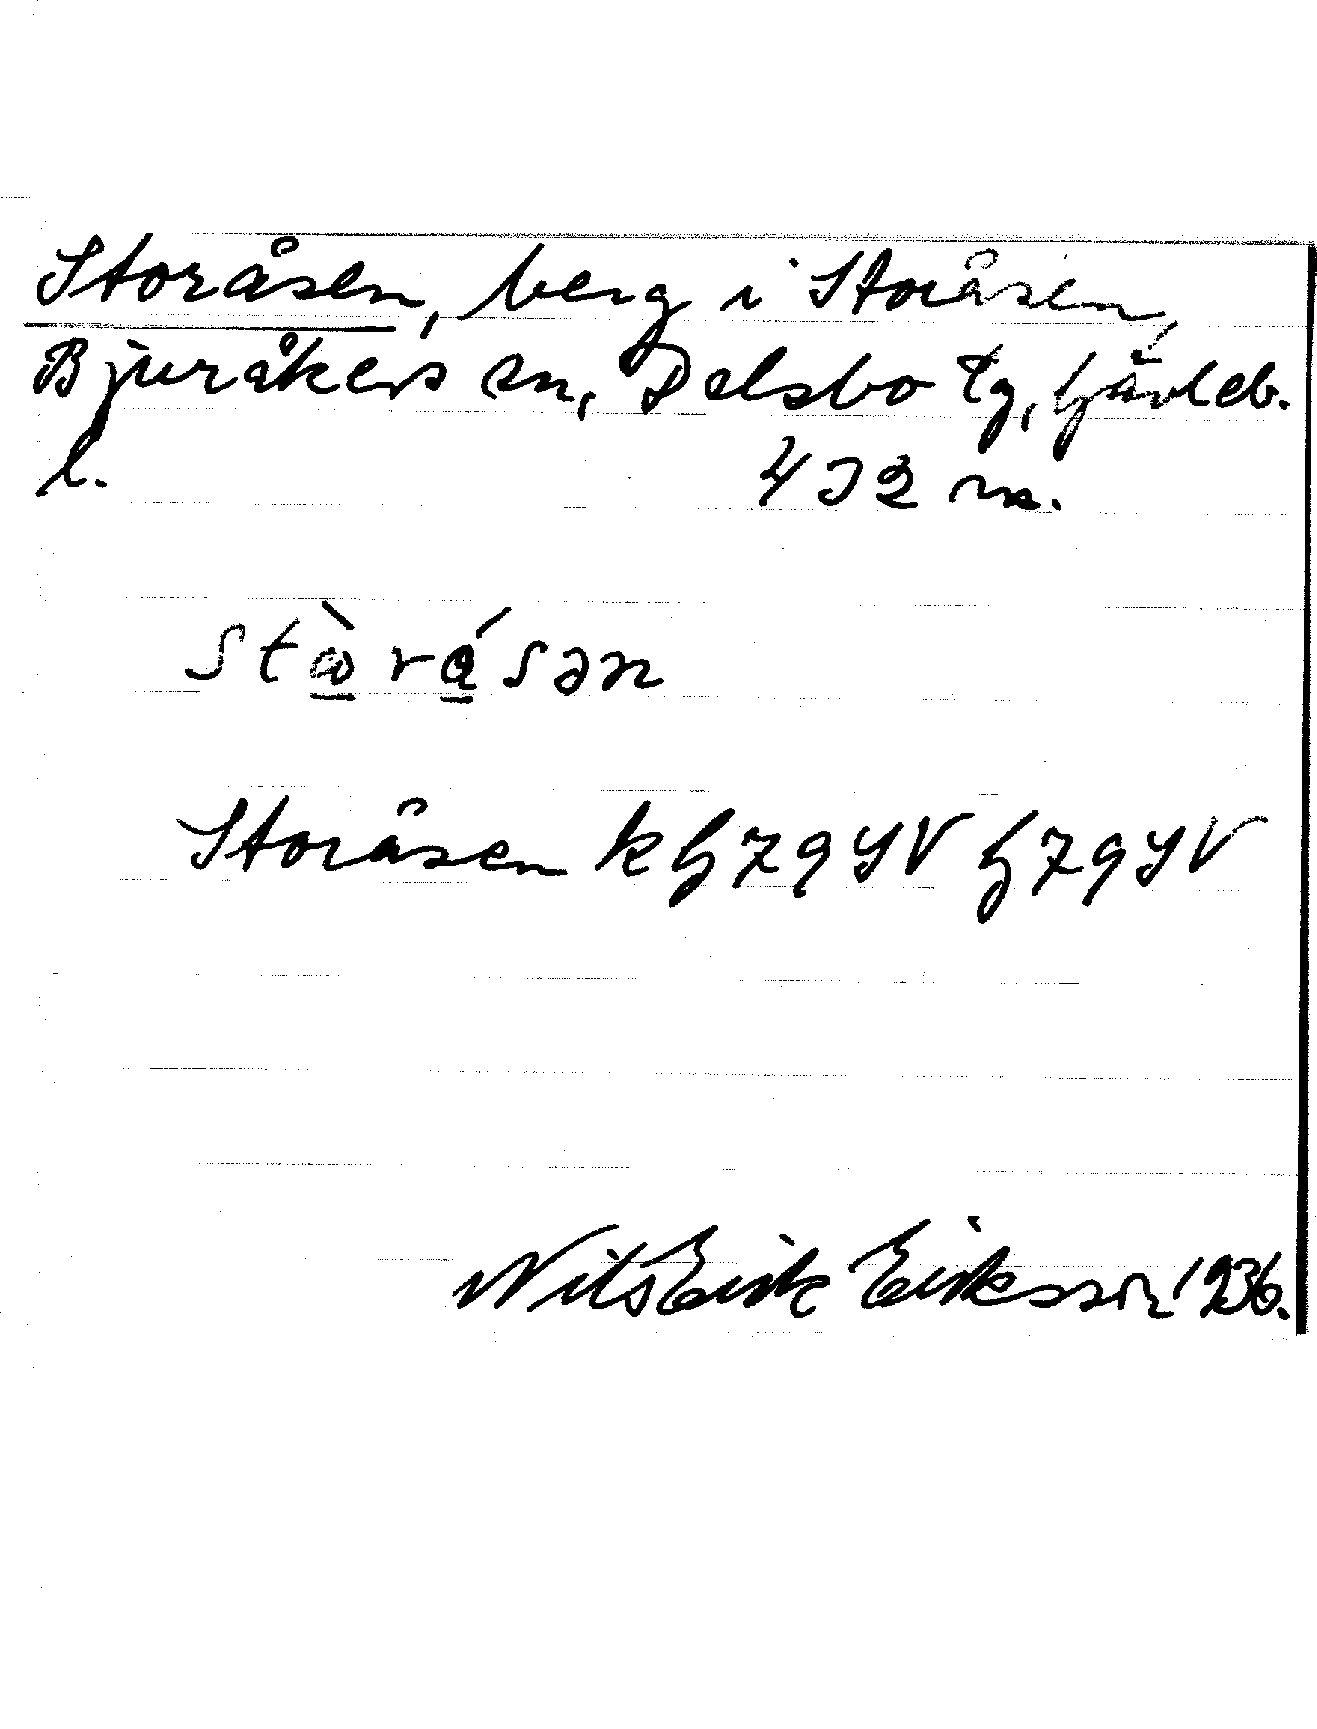 Storåsen, berg i Storåsen,
Bjuråkers sn, Delsbo tg, Gävleb.
l. 432 m.
stὼ̲rá̲sən
Storåsen k G 79 SV G 79 SV
Nils Erik Eriksson 1936.